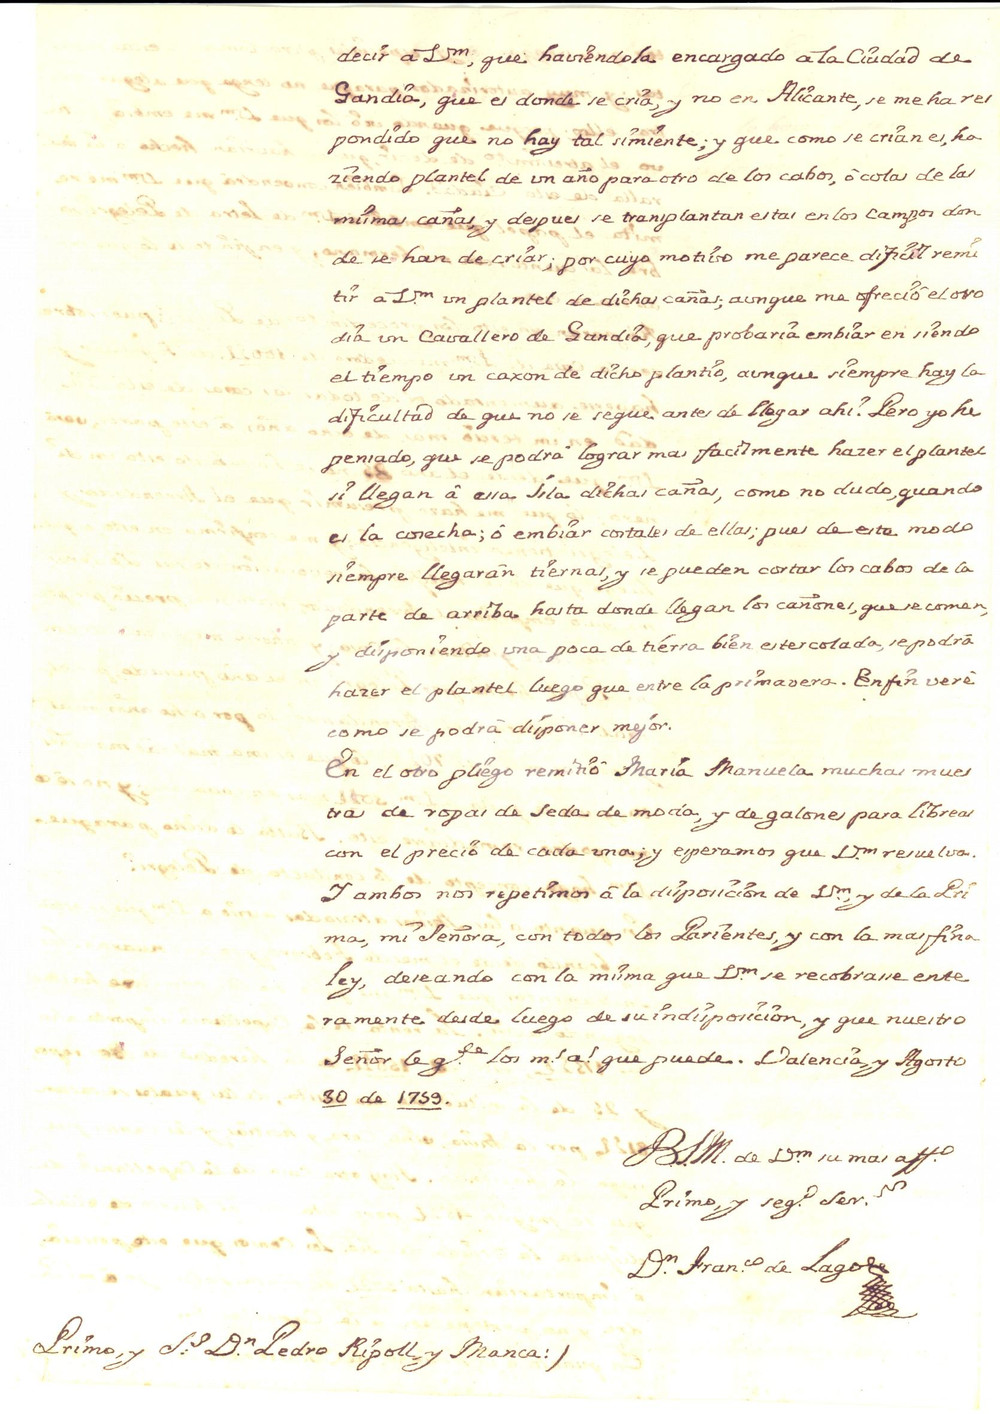 decir â Vm, que haviendola encargado â la Ciudad de
Gandia, que es donde se cria, y no en Alicante, se me ha res
pondido que no hay tal simiente; y que como se crian es, ha
ziendo plantel de un año para otro de los cabos, ô colas de las
mismas cañas, y despues se transplantan estas en los Campos don
de se han de criar; por cuyo motivo me parece dificil remi
tir â Vm un plantel de dichas cañas; aunque me ofreciô el otro
dia un Cavallero de Gandia, que probaria embiar en siendo
el tiempo un caxon de dicho plantio, aunque siempre hay la
dificultad de que no se segue antes de llegar ahi. Pero yo he
pensado, que se podrâ lograr mas facilmente hazer el plantel
si llegan â essa Isla dichas cañas, como no dudo, quando
es la cosecha; ô embiar costales de ellas; pues de este modo
siempre llegarân tiernas, y se pueden cortar los cabos de la
parte de arriba hasta donde llegan los cañones, que se comen,
y disponiendo una poca de tierra bien estercolada, se podrâ
hazer el plantel luego que entre la primavera. Enfin verê
como se podrâ disponer mejor.
En el otro pliego remitiô Maria Manuela muchas mues
tras de ropas de seda de moda, y de galones para libreas
con el precio de cada una; y esperamos que Vm resuelva.
Y ambos nos repetimos â la disposicion de Vm, y de la Pri
ma, mi Señora, con todos los Parientes, y con la mas fina
ley, deseando con la misma que Vm se recobrasse ente
ramente desde luego de su indisposicion, y que nuestro
Señor le gde los ms as que puede. Valencia, y Agosto
30 de 1759.
BSM. de Vm su mas affo
Primo, y segº Ser.
Dn Franco de Lago
Primo, y Sr Dn Pedro Ripoll, y Manca:)